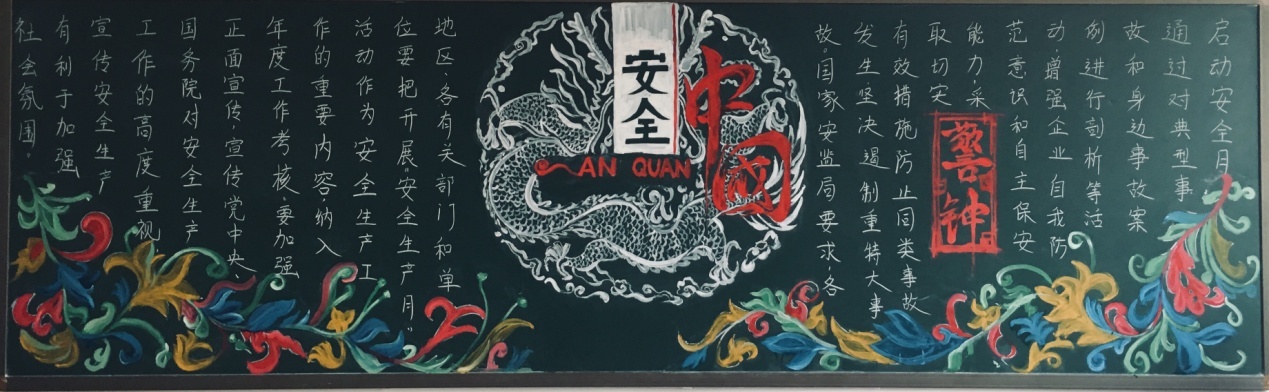 启动安全月
通过对典型事
故和身边事故案
例进行剖析等活
动,增强企业自我防
范意识和自主保安
能力,采
取切实
有效措施防止同类事故
发生坚决遏制重特大事
故。国家安监局要求,各
警钟
中國
安全
AN QUAN
地区、各有关部门和单
位要把开展“安全生产月”
活动作为安全生产工
作的重要内容,纳入
年度工作考核,要加强
正面宣传,宣传党中央、
国务院对安全生产
工作的高度重视,
宣传安全生产
有利于加强
社会氛围。